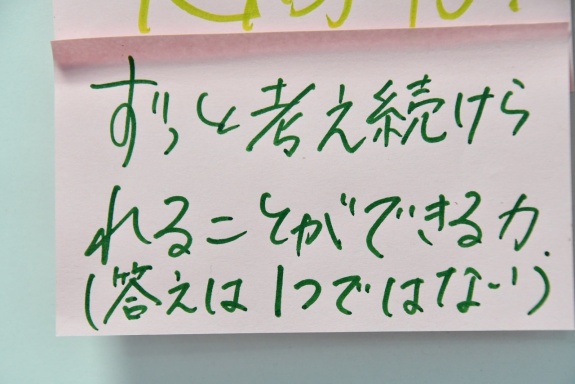 ずっと考え続けら
れることができる力.
(答えは1つではない)